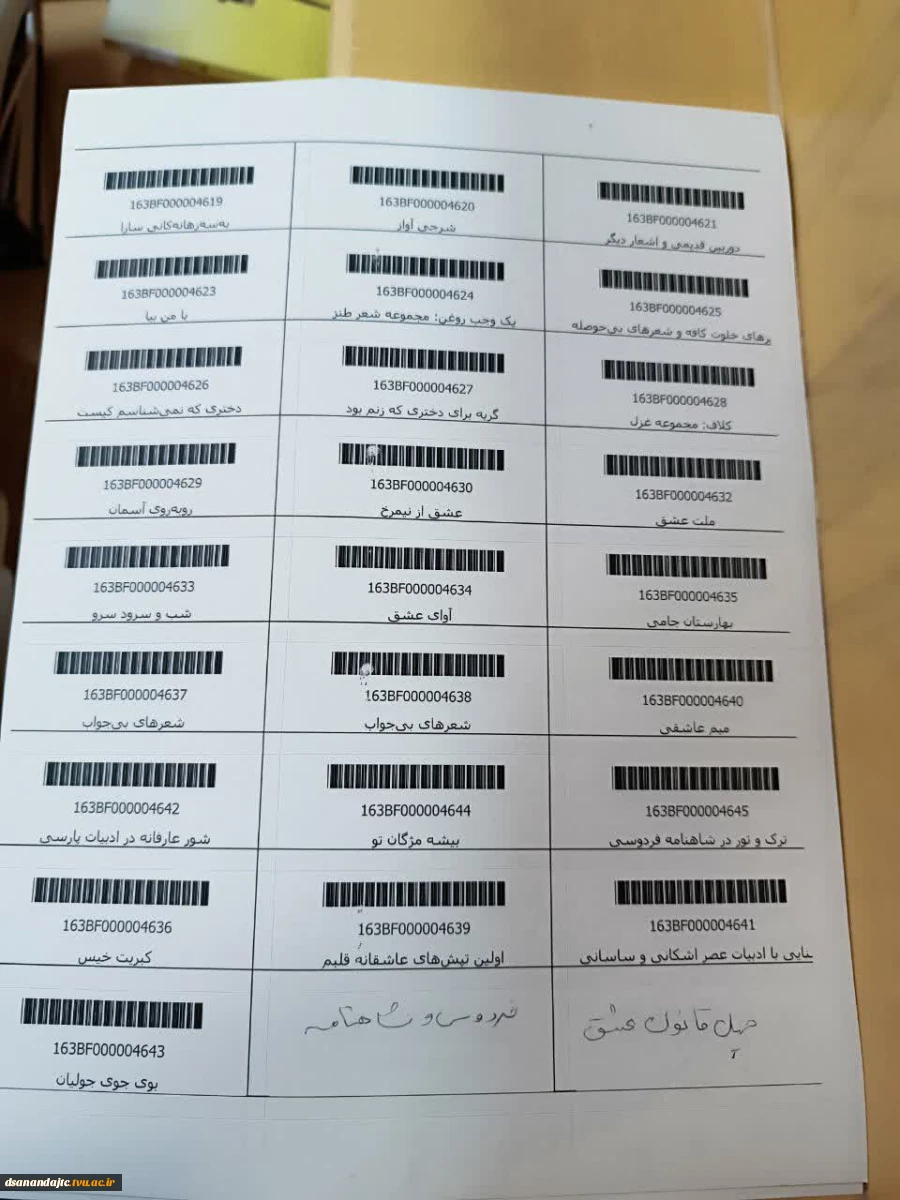 163BF000004619
به‌سه‌رهاته‌کانی سارا
163BF000004620
شرجی آواز
163BF000004621
دوربین قدیمی و اشعار دیگر
163BF000004623
با من بیا
163BF000004624
یک وجب روغن: مجموعه شعر طنز
163BF000004625
رهای خلوت کافه و شعرهای بی‌حوصله
163BF000004626
دختری که نمی‌شناسم کیست
163BF000004627
گریه برای دختری که زنم بود
163BF000004628
کلاف: مجموعه غزل
163BF000004629
روبه‌روی آسمان
163BF000004630
عشق از نیمرخ
163BF000004632
ملت عشق
163BF000004633
شب و سرود سرو
163BF000004634
آوای عشق
163BF000004635
بهارستان جامی
163BF000004637
شعرهای بی‌جواب
163BF000004638
شعرهای بی‌جواب
163BF000004640
میم عاشقی
163BF000004642
شور عارفانه در ادبیات پارسی
163BF000004644
بیشه مژگان تو
163BF000004645
ترک و تور در شاهنامه فردوسی
163BF000004636
کبریت خیس
163BF000004639
اولین تپش‌های عاشقانه قلبم
163BF000004641
نایی با ادبیات عصر اشکانی و ساسانی
163BF000004643
بوی جوی جولیان
فردوسی و شاهنامه
چهل قانون عشق
dsanandajtc.tvu.ac.ir